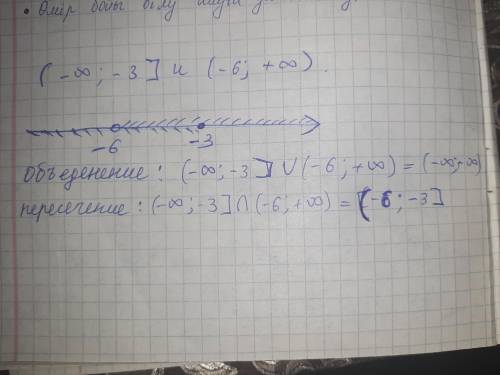 • Өмір бойы білу
(-∞; -3] и (-6; +∞).
-6 -3
Объеденение: (-∞; -3] ∪ (-6; +∞) = (-∞; +∞)
пересечение: (-∞; -3] ∩ (-6; +∞) = (-6; -3]